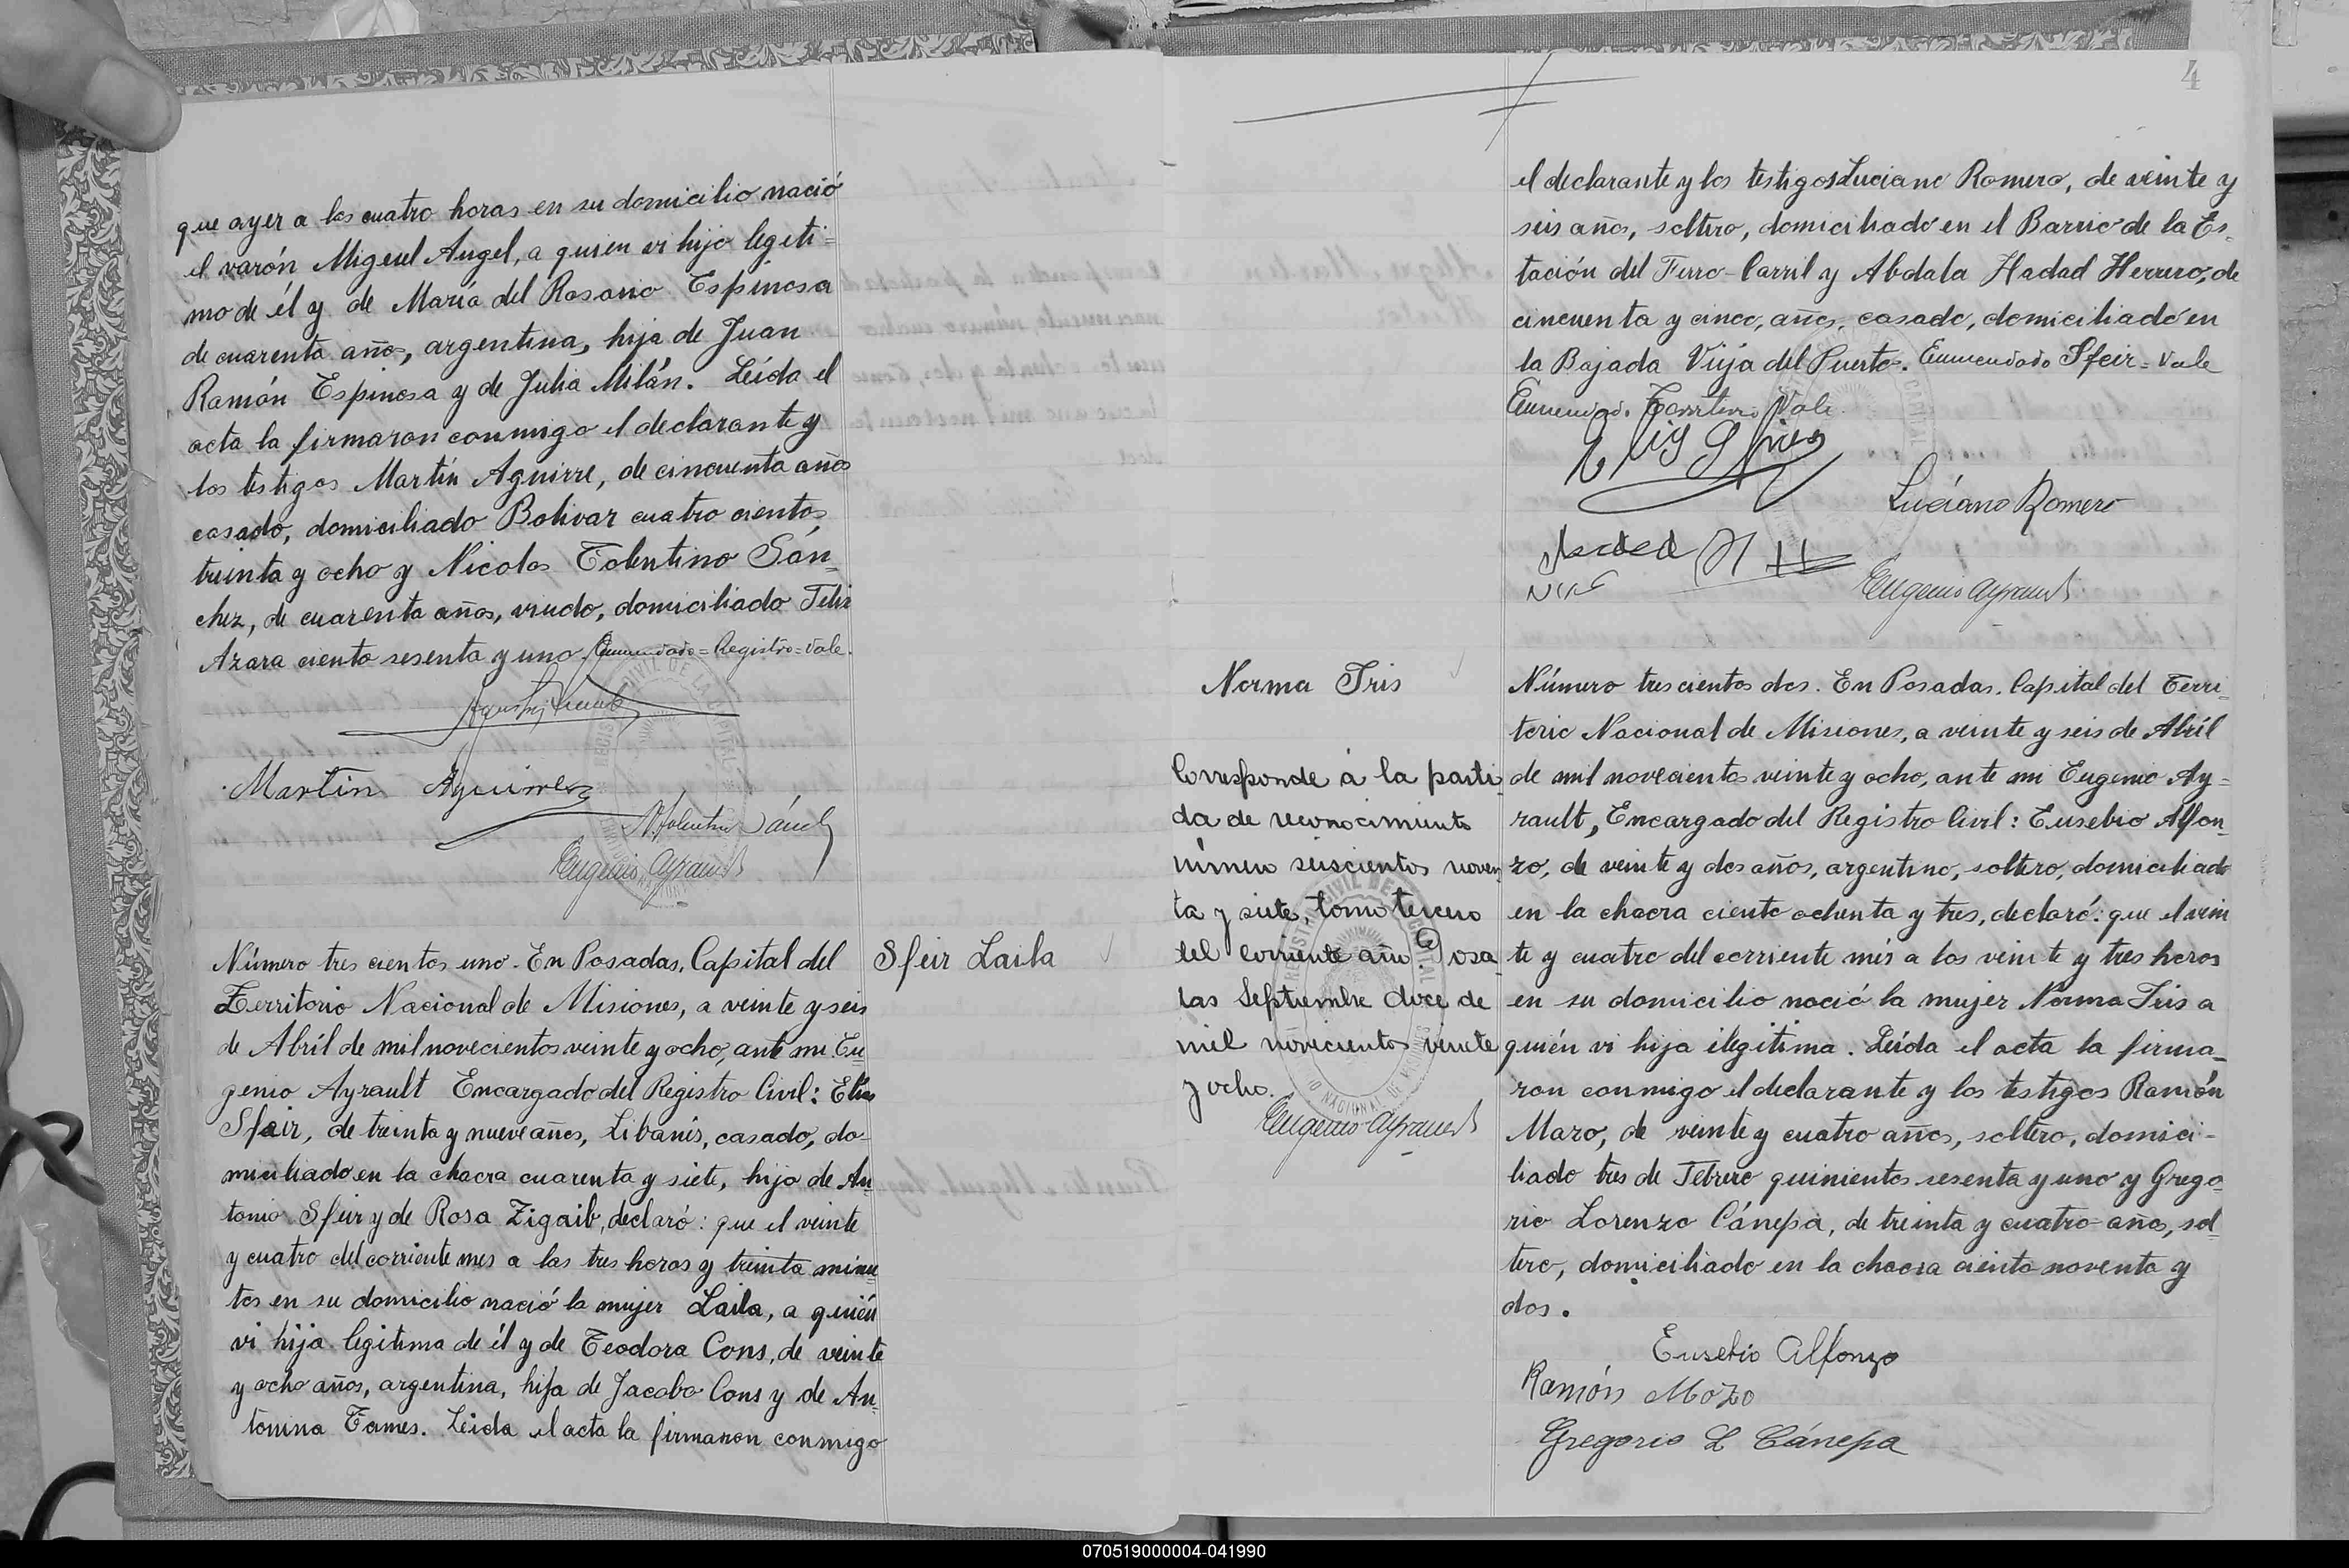 que ayer a las cuatro horas en su domicilio nació
el varón Miguel Angel, a quien vi hijo legiti=
mo de él y de María del Rosario Espinosa
de cuarenta años, argentina, hija de Juan
Ramón Espinosa y de Julia Milán. Leída el
acta la firmaron conmigo el declarante y
los testigos Martín Aguirre, de cincuenta años
casado, domiciliado Bolivar cuatro cientos
treinta y ocho y Nicolas Tolentino Sán-
chez, de cuarenta años, viudo, domiciliado Felix
Azara ciento sesenta y uno. Enmendado=Registro=Vale.
Martin Aguirre
N. Tolentino Sánchez
Eugenio Ayrault
Número tres cientos uno. En Posadas, Capital del
Territorio Nacional de Misiones, a veinte y seis
de Abríl de mil novecientos veinte y ocho, ante mi Eu-
genio Ayrault Encargado del Registro Civil: Elias
Sfeir, de treinta y nueve años, Libanés, casado, do-
miciliado en la chacra cuarenta y siete, hijo de An-
tonio Sfeir y de Rosa Zigaib, declaró: que el veinte
y cuatro del corriente mes a las tres horas y treinta minu-
tos en su domicilio nació la mujer Laila, a quién
vi hija legitima de él y de Teodora Cons, de veinte
y ocho años, argentina, hija de Jacobo Cons y de An-
tonina Tames. Leida el acta la firmaron conmigo
Sfeir Laila
4
el declarante y los testigos Luciano Romero, de veinte y
seis años, soltero, domiciliado en el Barrio de la Es-
tación del Ferro-Carril y Abdala Hadad Herrero, de
cincuenta y cinco, años, casado, domiciliado en
la Bajada Vieja del Puerto. Enmendado Sfeir=Vale
Enmendo. Territorio Vale.
Luciano Romero
Eugenio Ayrault
Norma Iris
Corresponde á la parti
da de reconocimiento
número seiscientos noven
ta y siete, tomo tercero
del corriente año. Posa
das Septiembre doce de
mil novecientos veinte
y ocho.
Eugenio Ayrault
Número tres cientos dos. En Posadas. Capital del Terri-
torio Nacional de Misiones, a veinte y seis de Abríl
de mil novecientos veinte y ocho, ante mi Eugenio Ay=
rault, Encargado del Registro Civil: Eusebio Alfon-
zo, de veinte y dos años, argentino, soltero, domiciliado
en la chacra ciento ochenta y tres, declaró: que el vein
te y cuatro del corriente més a las veinte y tres horas
en su domicilio nació la mujer Norma Iris a
quién vi hija ilegitima. Leída el acta la firma-
ron conmigo el declarante y los testigos Ramón
Mazo, de veinte y cuatro años, soltero, domici-
liado tres de Febrero quinientos sesenta y uno y Grego-
rio Lorenzo Cánepa, de treinta y cuatro años, sol-
tero, domiciliado en la chacra ciento noventa y
dos.
Eusebio Alfonzo
Ramón Mozo
Gregorio L Cánepa
070519000004-041990